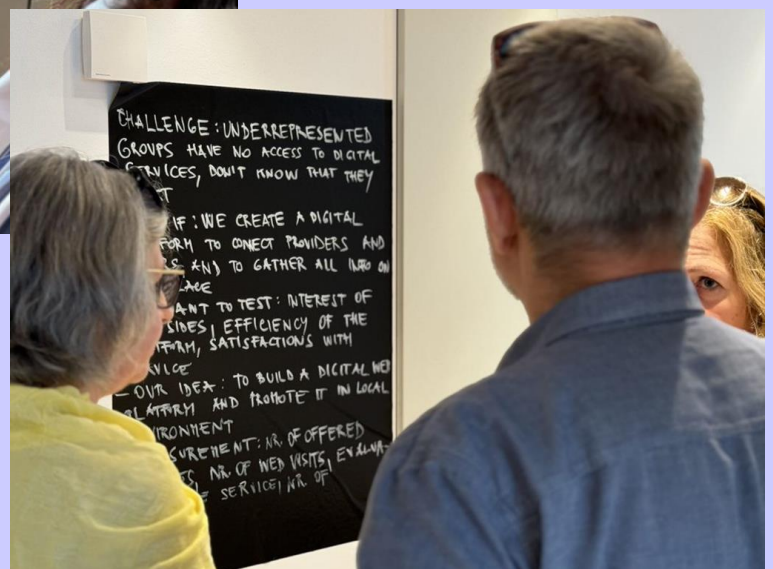 CHALLENGE: UNDERREPRESENTED
GROUPS HAVE NO ACCESS TO DIGITAL
SERVICES, DON'T KNOW THAT THEY
IF: WE CREATE A DIGITAL
FORM TO CONECT PROVIDERS AND
AND TO GATHER ALL INFO ON
ANT TO TEST: INTEREST OF
SIDES, EFFICIENCY OF THE
FORM, SATISFACTIONS WITH
- OUR IDEA: TO BUILD A DIGITAL WEB
PLATFORM AND PROMOTE IT IN LOCAL
IRONMENT
SUREMENT: NR. OF OFFERED
NR. OF WEB VISITS, EVALUA-
SERVICE, NR. OF